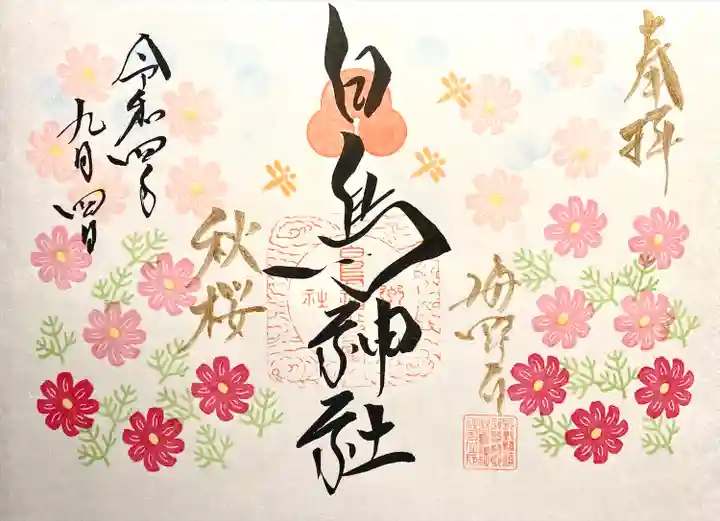 奉拝
海野宿
白鳥神社
秋桜
令和四年
九月四日